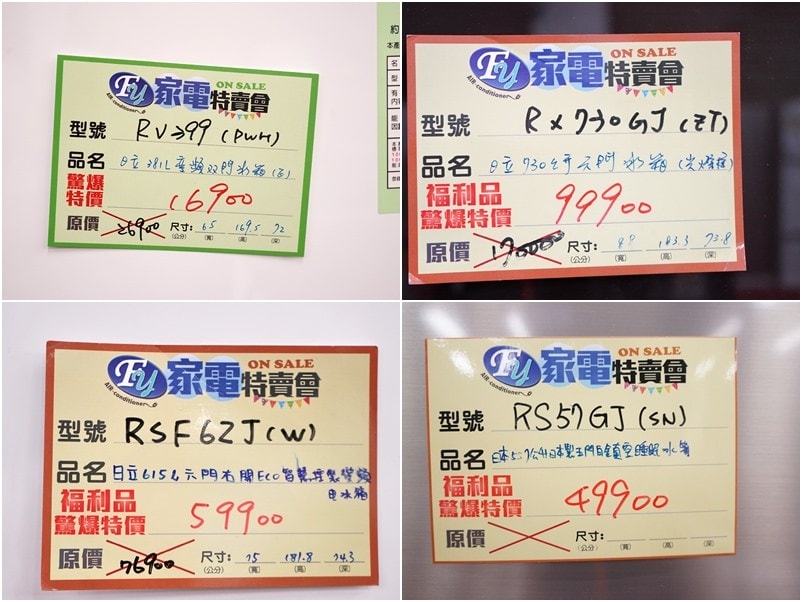 Fu 家電特賣會 ON SALE
AIR-conditioner
型號 RV399 (PWH)
品名 日立 381L 變頻双門冰箱
驚爆特價 16900
原價 26900 尺寸: 65 169.5 72
(公分) (寬) (高) (深)
Fu 家電特賣會 ON SALE
AIR-conditioner
型號 RX730GJ (ZT)
品名 日立 730公升六門冰箱
福利品
驚爆特價 99900
原價 170000 尺寸: 183.3 73.8
(公分) (寬) (高) (深)
Fu 家電特賣會 ON SALE
AIR-conditioner
型號 RSF62J(W)
品名 日立615L六門右開Eco智慧控製變頻
电冰箱
福利品
驚爆特價 59900
原價 76900 尺寸: 75 181.8 74.3
(公分) (寬) (高) (深)
Fu 家電特賣會 ON SALE
AIR-conditioner
型號 RS57GJ (SN)
品名 日本557公升日本製五門白金真空睡眠冰箱
福利品
驚爆特價 49900
原價 尺寸:
(公分) (寬) (高) (深)